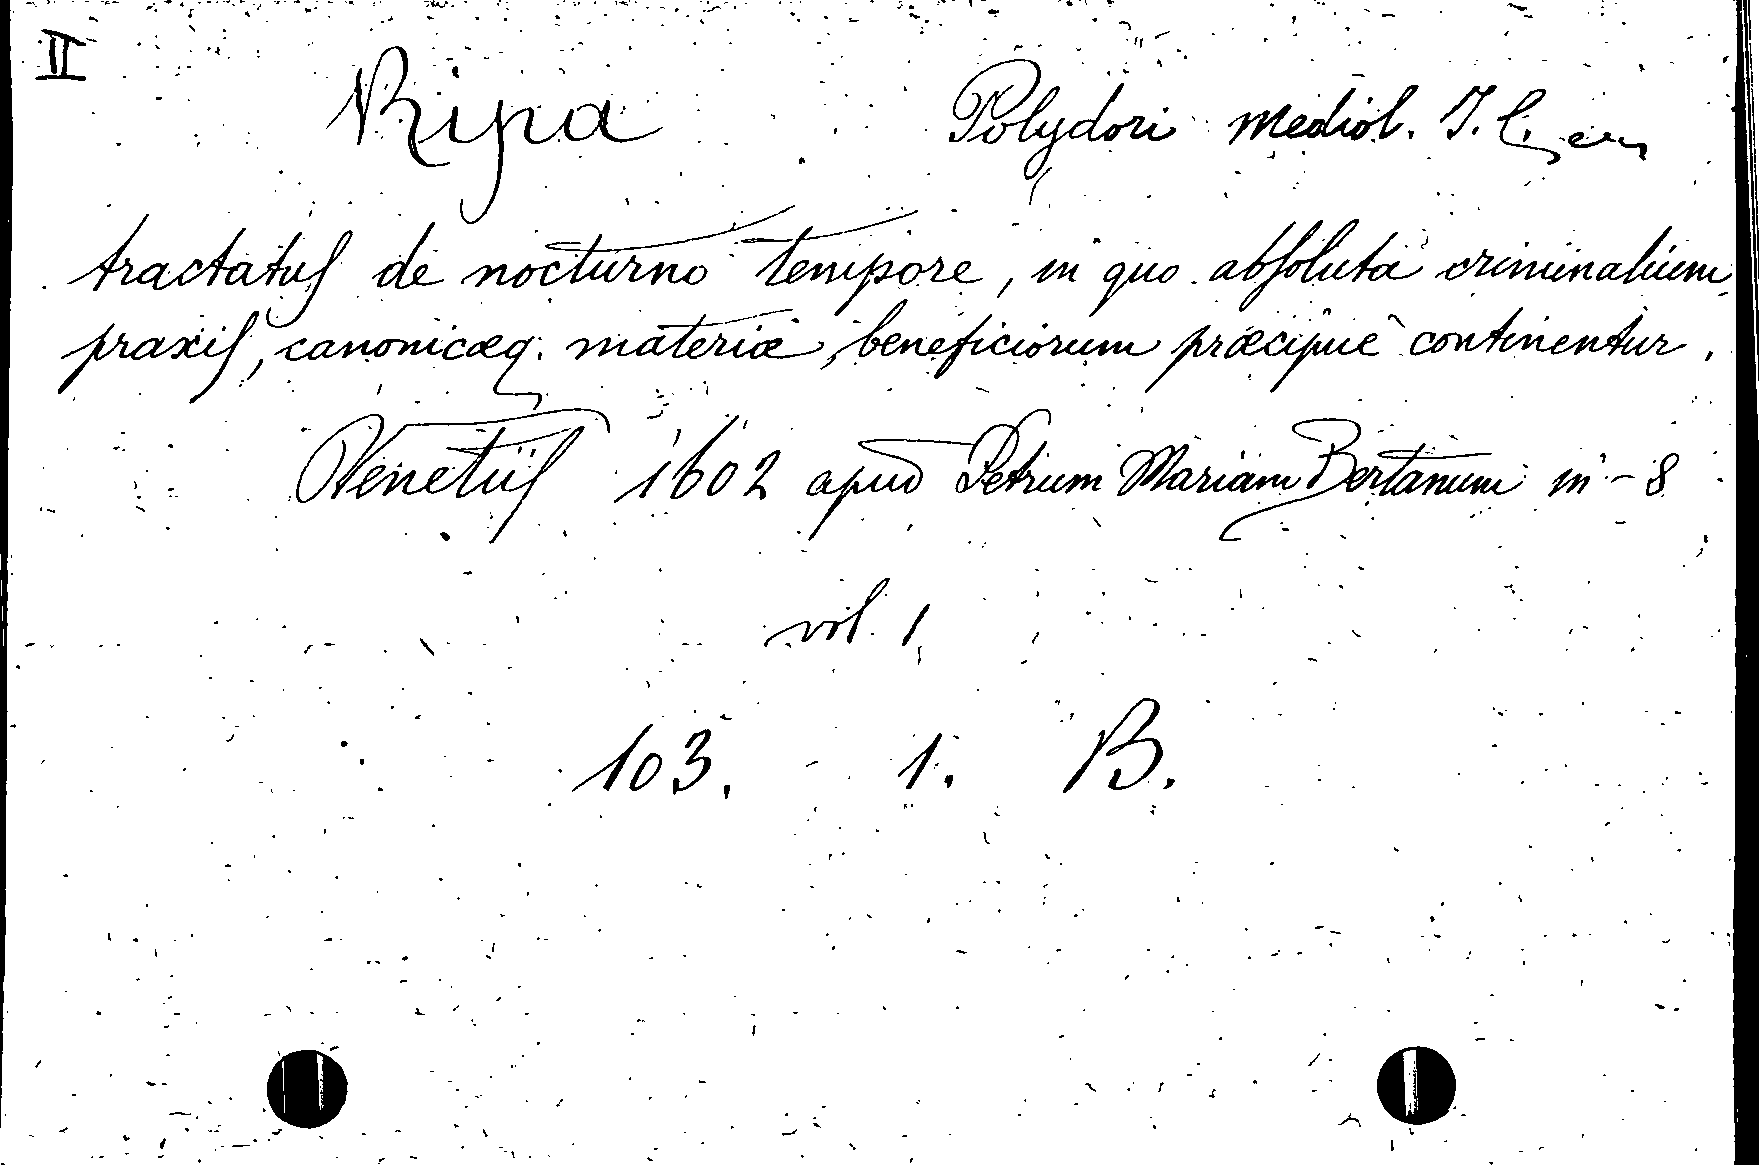 II
Ripa Polydori mediol. J. C.
tractatus de nocturno tempore, in quo absoluta criminalium
praxis, canonicæq. materiæ, beneficiorum præcipuè continentur.
Venetiis 1602 apud Petrum Mariam Bertanum in-8
vol. 1
103. 1. B.